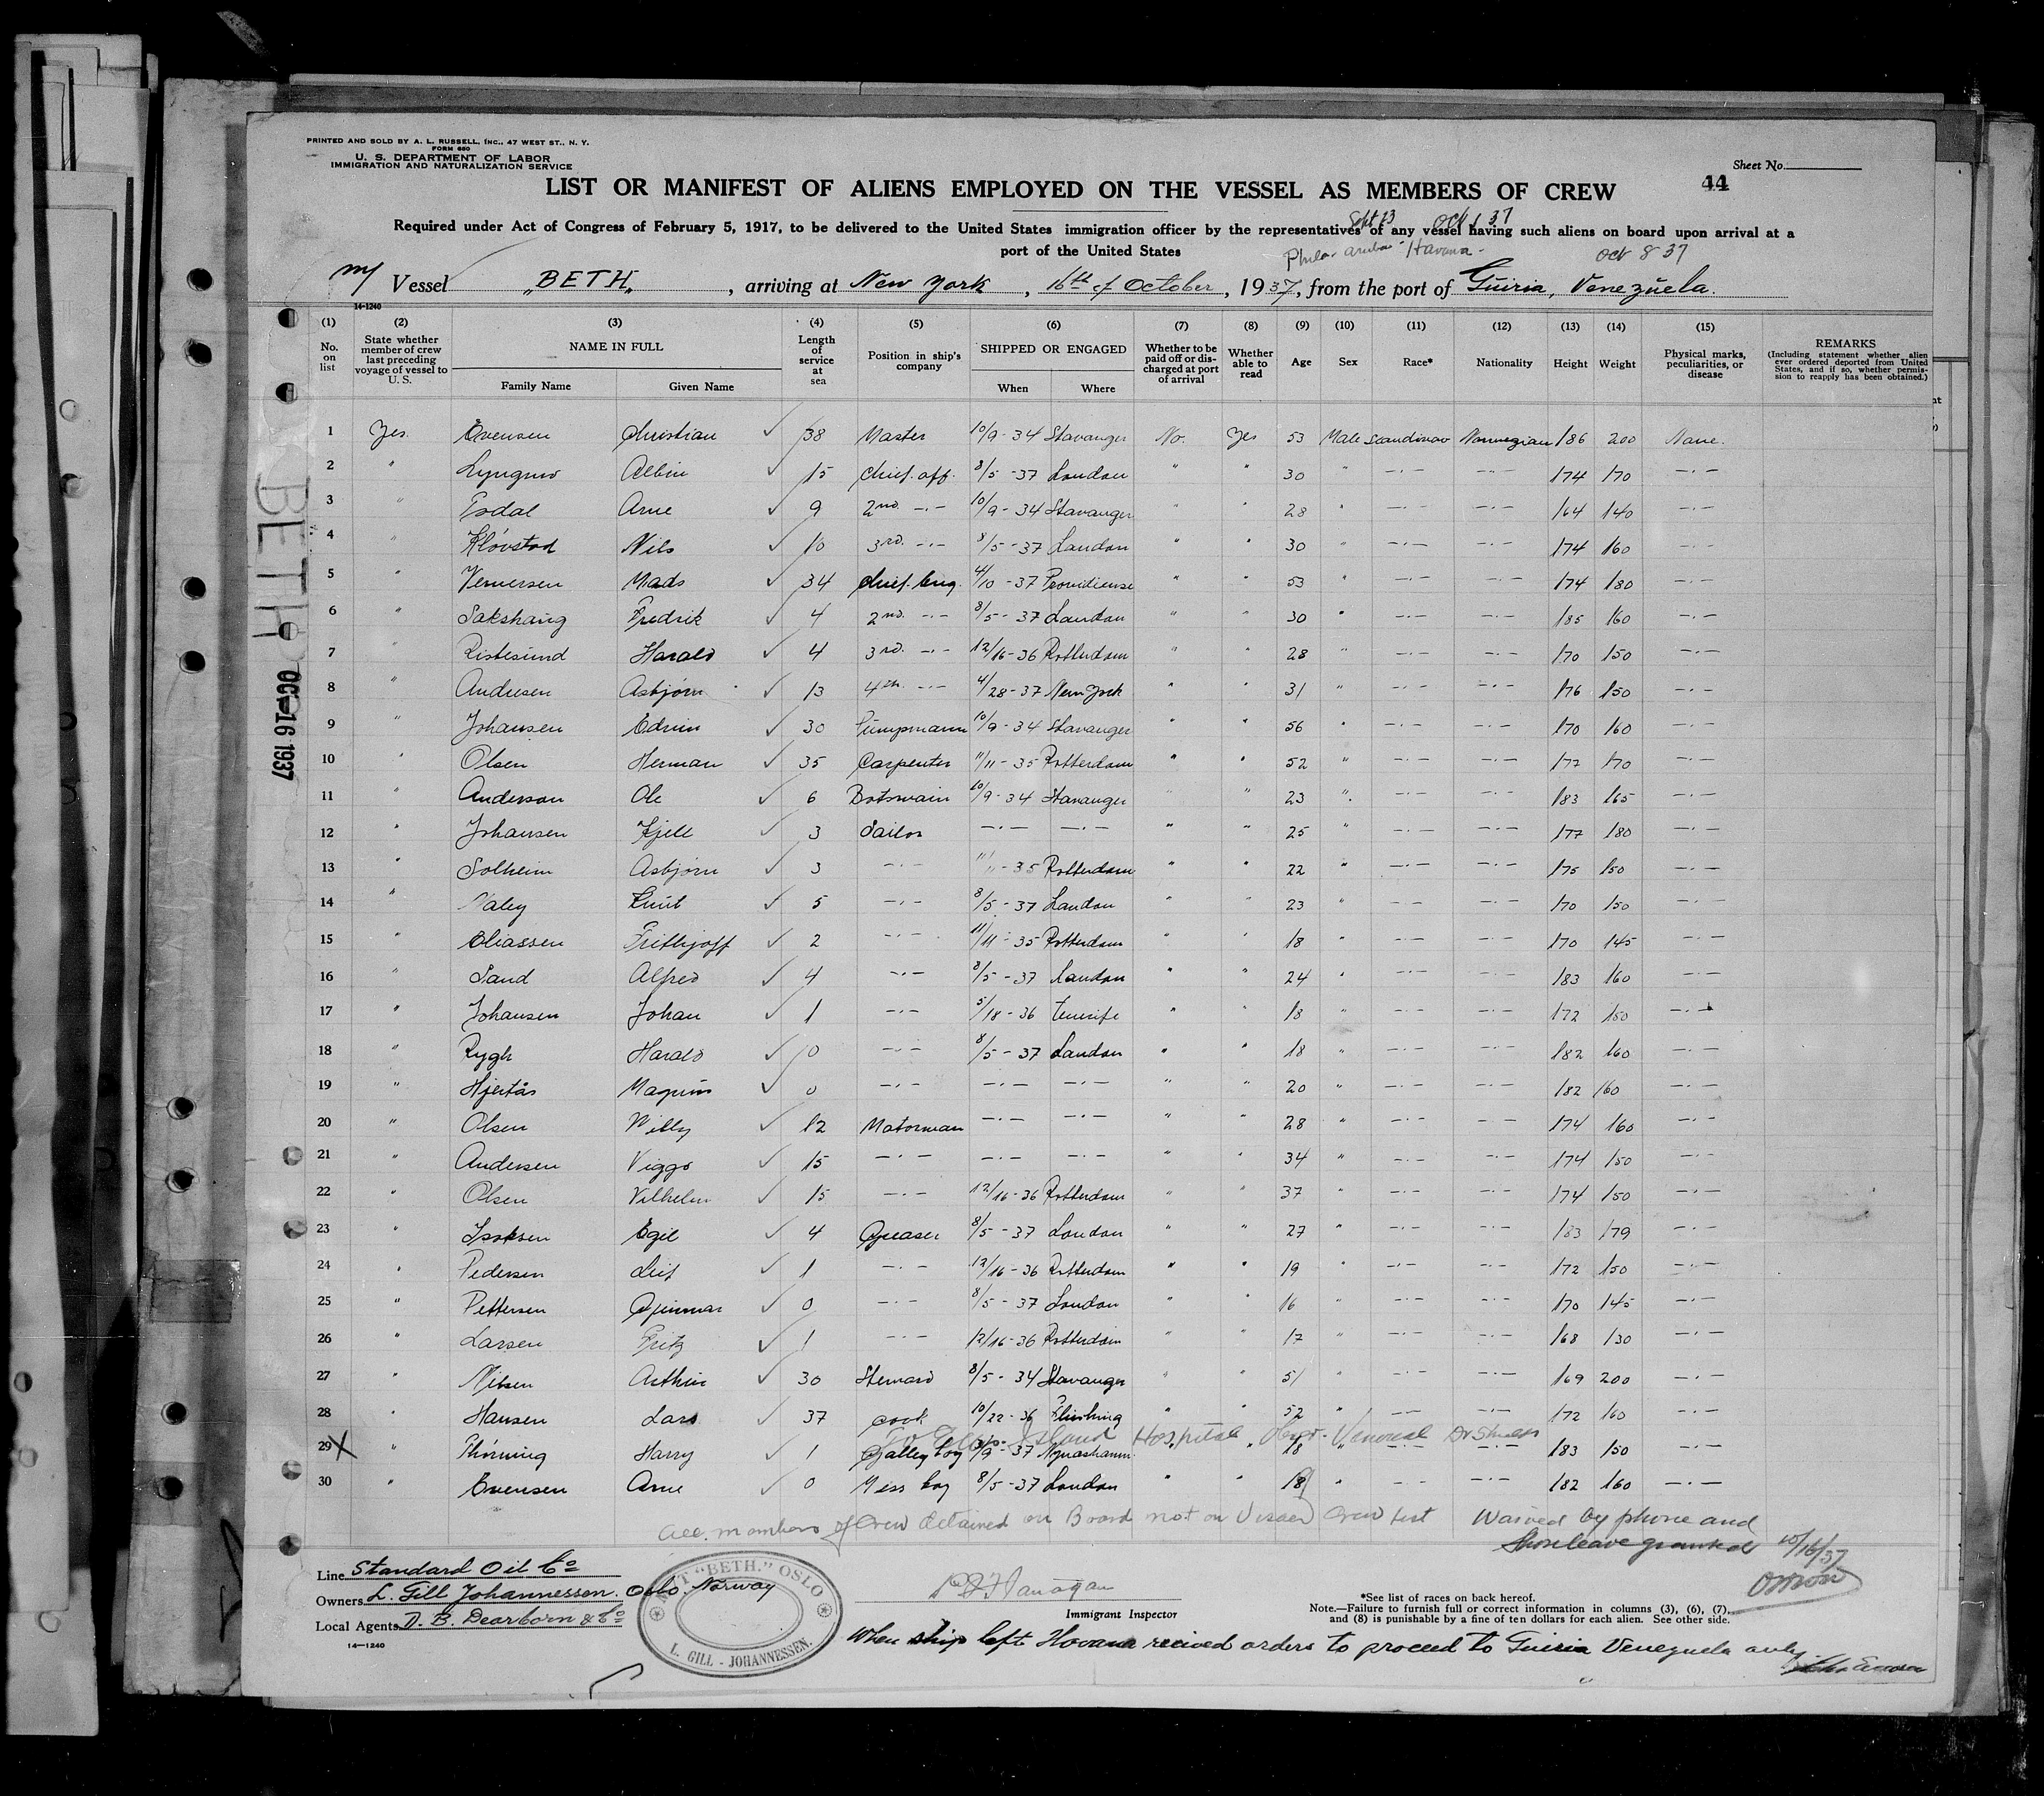 PRINTED AND SOLD BY A. L. RUSSELL, INC., 47 WEST ST., N. Y.
FORM 680
U. S. DEPARTMENT OF LABOR
IMMIGRATION AND NATURALIZATION SERVICE
Sheet No.
44
LIST OR MANIFEST OF ALIENS EMPLOYED ON THE VESSEL AS MEMBERS OF CREW
Required under Act of Congress of February 5, 1917, to be delivered to the United States immigration officer by the representatives of any vessel having such aliens on board upon arrival at a
port of the United States
Sept 23 Oct 1 37
Phila. Aruba - Havana - Oct 8 37
M/ Vessel "BETH", arriving at New York, 16th of October, 1937, from the port of Guiria, Venezuela.
14-1240
(1) No. on list
(2) State whether member of crew last preceding voyage of vessel to U. S.
(3) NAME IN FULL Family Name Given Name
(4) Length of service at sea
(5) Position in ship's company
(6) SHIPPED OR ENGAGED When Where
(7) Whether to be paid off or discharged at port of arrival
(8) Whether able to read
(9) Age
(10) Sex
(11) Race*
(12) Nationality
(13) Height
(14) Weight
(15) Physical marks, peculiarities, or disease
REMARKS (Including statement whether alien ever ordered deported from United States, and if so, whether permission to reapply has been obtained.)
1 Yes. Evensen Christian 38 Master 10/9-34 Stavanger No. Yes 53 Male Scandinav Norwegian 186 200 None.
2 " Albin 15 Chief. off. 8/5-37 London " " 30 " -.- -.- 174 170 -.-
3 " Arne 9 2nd. -.- 10/9-34 Stavanger " " 28 " -.- -.- 164 140 -.-
4 " Kløvstad Nils 10 3rd. -.- 8/5-37 London " " 30 " -.- -.- 174 160 -.-
5 " Mads 34 Chief. Eng. 4/10-37 " " 53 " -.- -.- 174 180 -.-
6 " Sakshaug Fredrik 4 2nd. -.- 8/5-37 London " " 30 " -.- -.- 185 160 -.-
7 " Ristesund Harald 4 3rd. -.- 12/16-36 Rotterdam " " 28 " -.- -.- 170 150 -.-
8 " Andresen Asbjørn 13 4th. -.- 4/28-37 New York " " 31 " -.- -.- 176 150 -.-
9 " Johansen Edvin 30 Pumpmann 10/9-34 Stavanger " " 56 " -.- -.- 170 160 -.-
10 " Olsen Herman 35 Carpenter 11/11-35 Rotterdam " " 52 " -.- -.- 177 170 -.-
11 " Anderson Ole 6 Botswain 10/9-34 Stavanger " " 23 " -.- -.- 183 165 -.-
12 " Johansen Kjell 3 Sailor -.- -.- " " 25 " -.- -.- 177 180 -.-
13 " Solheim Asbjørn 3 -.- 11/11-35 Rotterdam " " 22 " -.- -.- 175 150 -.-
14 " Knut 5 -.- 8/5-37 London " " 23 " -.- -.- 170 150 -.-
15 " Eliassen Frithjoff 2 -.- 11/11-35 Rotterdam " " 18 " -.- -.- 170 145 -.-
16 " Sand Alfred 4 -.- 8/5-37 London " " 24 " -.- -.- 183 160 -.-
17 " Johansen Johan 1 -.- 5/18-36 Tenerife " " 18 " -.- -.- 172 150 -.-
18 " Rygh Harald 0 -.- 8/5-37 London " " 18 " -.- -.- 182 160 -.-
19 " Hjertås Magnus 0 -.- -.- -.- " " 20 " -.- -.- 182 160 -.-
20 " Olsen Willy 12 Motorman -.- -.- " " 28 " -.- -.- 174 160 -.-
21 " Andersen Viggo 15 -.- -.- -.- " " 34 " -.- -.- 174 150 -.-
22 " Olsen Vilhelm 15 -.- 12/16-36 Rotterdam " " 37 " -.- -.- 174 150 -.-
23 " Isaksen Egil 4 Greaser 8/5-37 London " " 27 " -.- -.- 183 179 -.-
24 " Pedersen Leif 1 -.- 12/16-36 Rotterdam " " 19 " -.- -.- 172 150 -.-
25 " Pettersen Gunnar 0 -.- 8/5-37 London " " 16 " -.- -.- 170 145 -.-
26 " Larsen Fritz 1 -.- 12/16-36 Rotterdam " " 17 " -.- -.- 168 130 -.-
27 " Nilsen Arthur 30 Steward 8/5-34 Stavanger " " 51 " -.- -.- 169 200 -.-
28 " Hansen Lars 37 Cook 10/22-36 Flushing " " 52 " -.- -.- 172 160 -.-
To Ellis Island Hospital Venereal
29 X " Thorning Harry 1 Galley boy 3/9-37 " " 18 " -.- -.- 183 150 -.-
30 " Evensen Arne 0 Mess boy 8/5-37 London " " 18 " -.- -.- 182 160 -.-
All members of crew detained on Board not on Visaed Crew List Waived by phone and
Shore leave granted 10/16/37
Line Standard Oil Co
Owners L. Gill Johannessen. Oslo, Norway
Local Agents D. B. Dearborn & Co
14—1240
M/T "BETH." OSLO
L. GILL - JOHANNESSEN.
Flanagan
Immigrant Inspector
*See list of races on back hereof.
Note.—Failure to furnish full or correct information in columns (3), (6), (7), and (8) is punishable by a fine of ten dollars for each alien. See other side.
When ship left Havana recived orders to proceed to Guiria Venezuela only
BETH
OCT 16 1937